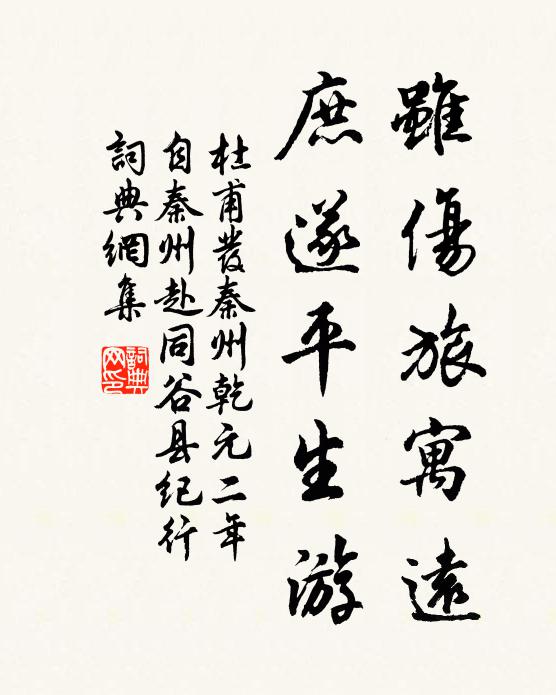 雖傷旅寓遠
庶遂平生游
杜甫發秦州乾元二年
自秦州赴同谷县纪行
詞典網集
詞典網印